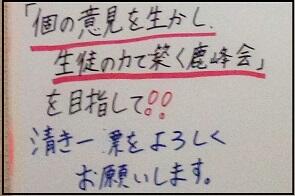 「個の意見を生かし、
生徒の力で築く鹿峰会」
を目指して!!
清き一票をよろしく
お願いします。